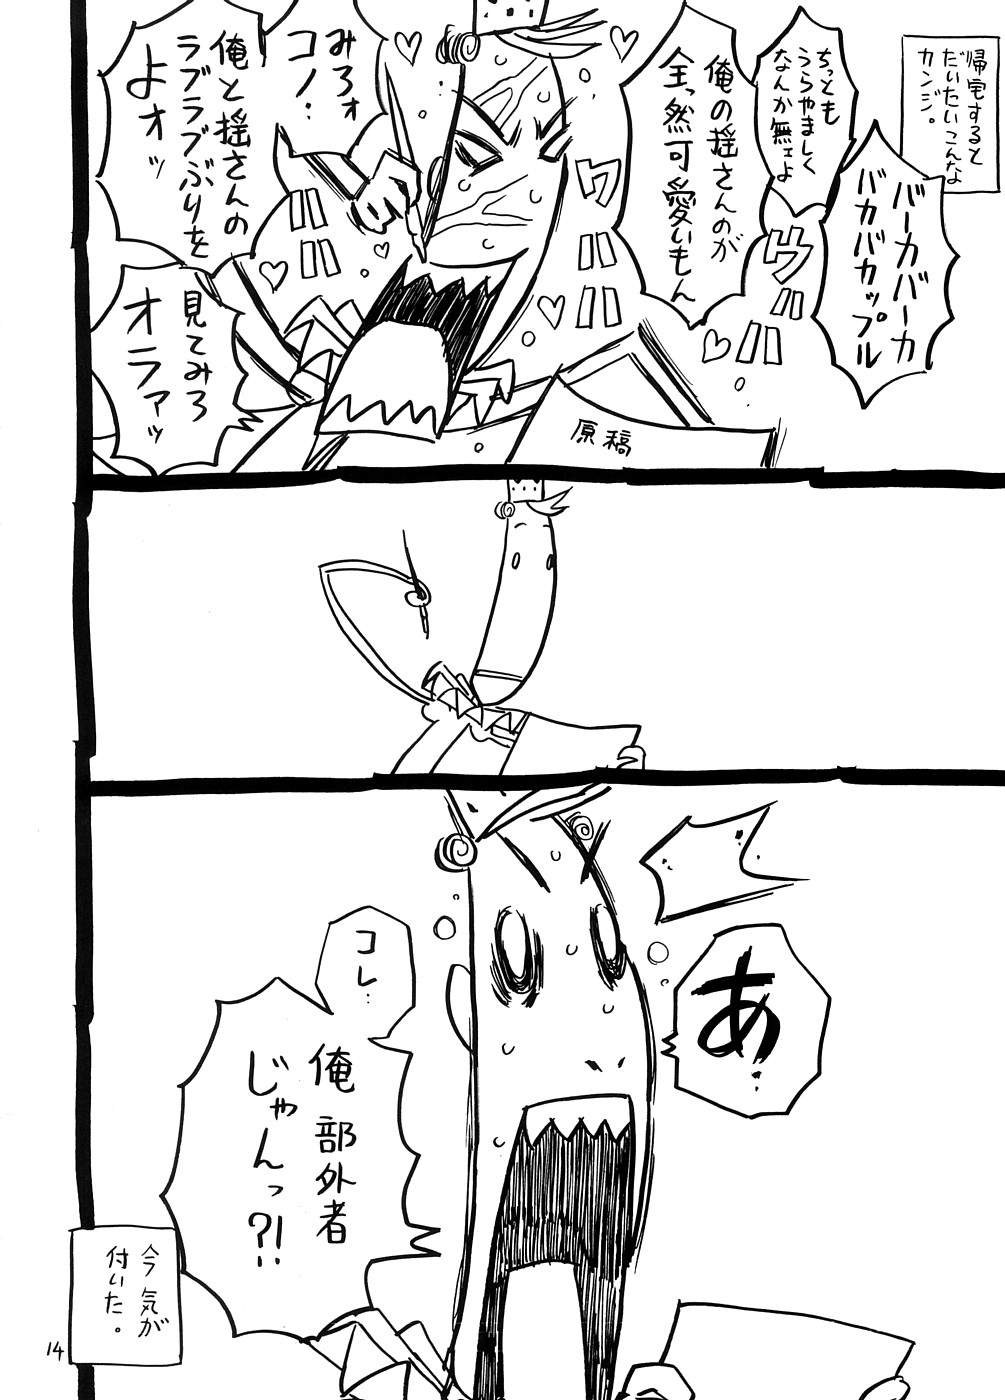 帰宅すると
だいたいこんな
カンジ。
バーカバーカ
バカバカップル
ちっとも
うらやましく
なんか無ェよ
俺の揺さんのが
全っ然可愛いもん
ウッハハ
ワハハハ
みろォ
コノ…
俺と揺さんの
ラブラブぶりを
よォッ
ハハ
ハハ
見てみろ
オラァッ
原稿
あ…
コレ…
俺 部外者
じゃんっ?!
今気が
付いた。
14